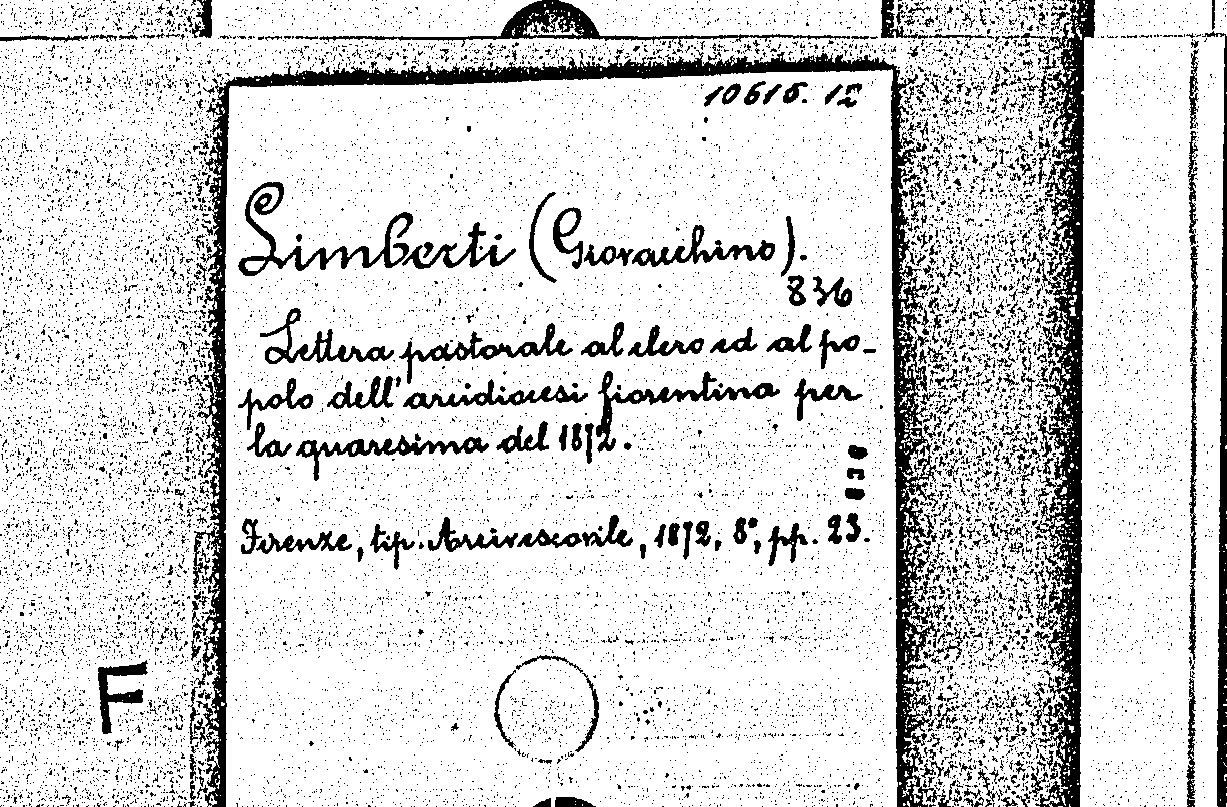 10615. 12
Limberti (Giovacchino).
836
Lettera pastorale al clero ed al po-
polo dell'arcidiocesi fiorentina per
la quaresima del 1872.
Firenze, tip. Arcivescovile, 1872, 8°, pp. 23.
F